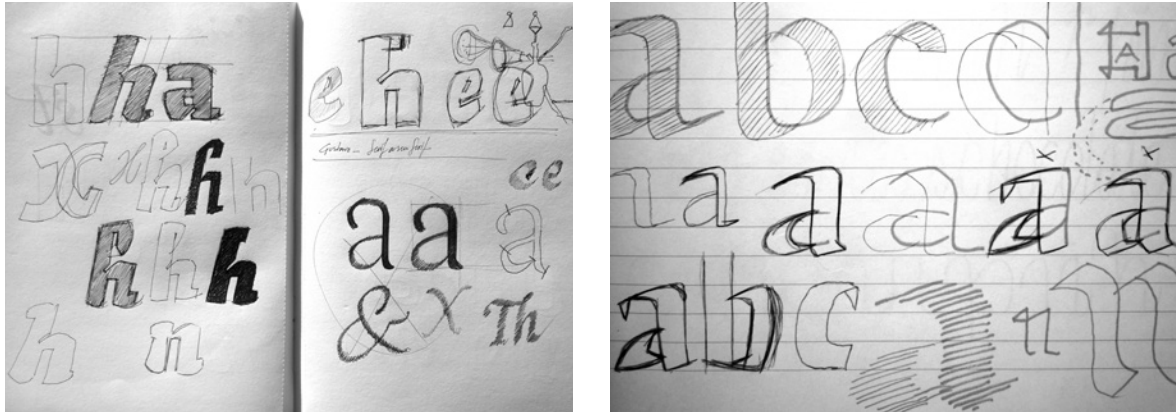 h h a
x x h h h
h h h
h n
e h e e
ce
a a a
& X Th
a b c d
A
a a a a a a
a b c a n n